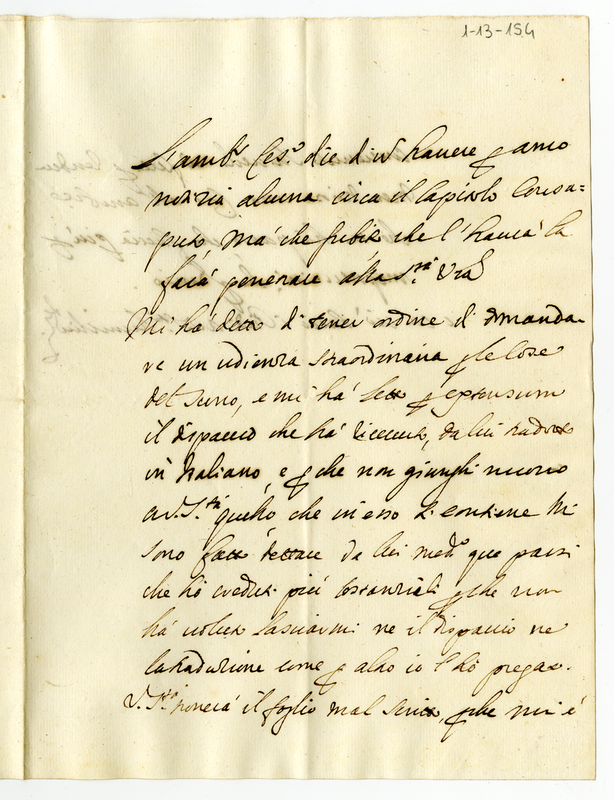 1-13-154
L'amb.r Ces.o dice di nõ havere p anco
notizia alcuna circa il Capitolo
ma che subito che l'havrà la
farà penetrare alla S.tà Vrã
Mi ha detto di tener ordine di domanda-
re un udienza straordinaria p le cose
del Turno, e mi ha letto p extensum
il dispaccio che ha ricevuto, da lui tradotto
in Italiano, e p che non giunghi nuovo
a V. S.tà quello che in esso si contiene mi
sono fatto dettare da lui med.o que passi
che ho creduti più sostanziali p che non
ha voluto lasciarmi ne il dispaccio ne
la traduzione come p altro io l'hò pregato.
V. S.tà il foglio mal scritto, p che mi è